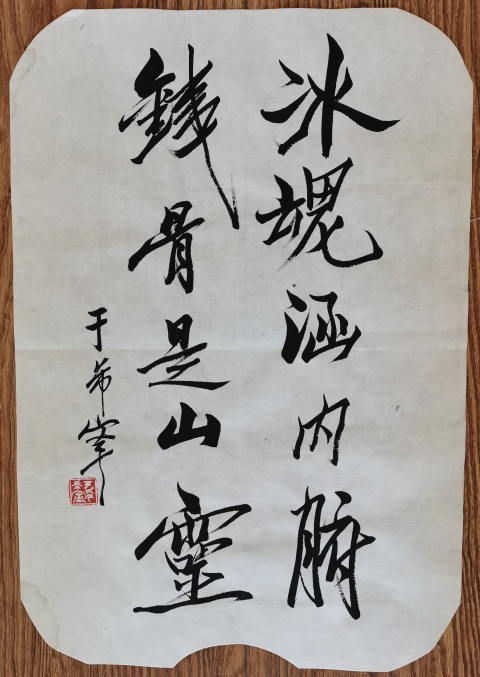 冰魂涵内腑
鐵骨是山靈
于希寧